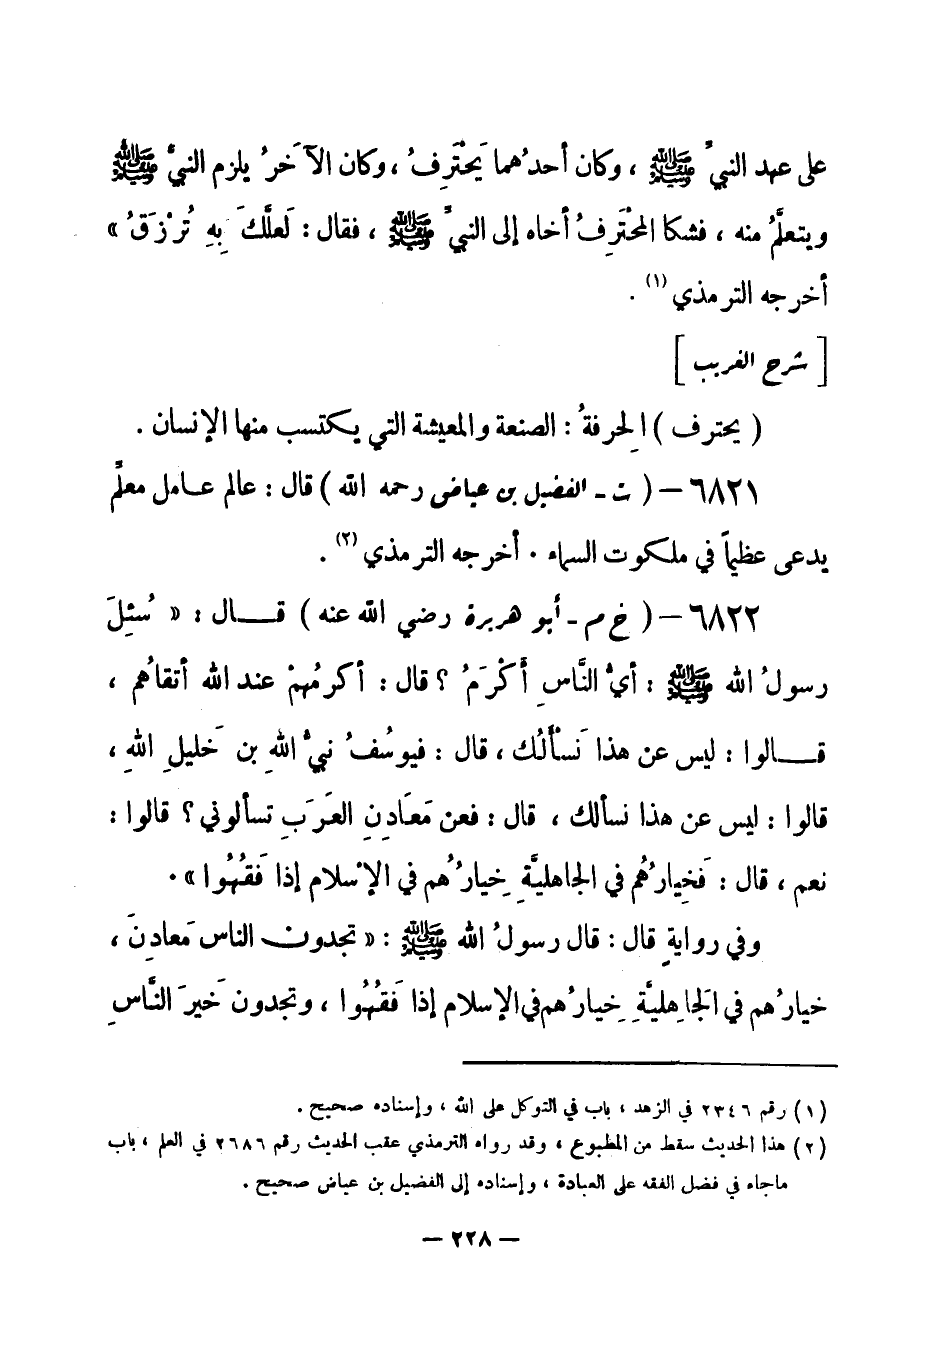 على عهد النبيِّ ﷺ ، وكان أحدُهما يَحْتَرِفُ ، وكان الآخَرُ يلزم النبيَّ ﷺ
ويتعلَّمُ منه ، فشكا المحْتَرِفُ أخاه إلى النبيِّ ﷺ ، فقال : لَعلَّكَ بِهِ تُرْزَقُ »
أخرجه الترمذي (١) .
[ شرح الغريب ]
( يحترف ) الحِرفةُ : الصنعة والمعيشة التي يكتسب منها الإنسان .
٦٨٢١ – ( ت - الفضيل بن عياض رحمه الله ) قال : عالم عامل معلِّم
يدعى عظيماً في ملكوت السماء . أخرجه الترمذي (٢) .
٦٨٢٢ – ( خ م - أبو هريرة رضي الله عنه ) قال : « سُئِلَ
رسولُ الله ﷺ : أيُّ النَّاسِ أَكْرَمُ ؟ قال : أكرمُهمْ عند الله أتقاهُم ،
قالوا : ليس عن هذا نَسْأَلُك ، قال : فيوسُفُ نبيُّ اللهِ بن خَليلِ اللهِ ،
قالوا : ليس عن هذا نسألك ، قال : فعن مَعَادِنِ العَرَبِ تسألوني ؟ قالوا :
نعم ، قال : فَخِيارُهُم في الجاهليَّةِ خِيارُهم في الإسْلام إذا فَقُهُوا » .
وفي روايةٍ قال : قال رسولُ الله ﷺ : « تجدون الناس مَعادِنَ ،
خيارُهم في الجَاهِليَّةِ خِيارُهم في الإسلام إذا فَقُهُوا ، وتجدون خَيرَ النَّاسِ
(١) رقم ٢٣٤٦ في الزهد ، باب في التوكل على الله ، وإسناده صحيح .
(٢) هذا الحديث سقط من المطبوع ، وقد رواه الترمذي عقب الحديث رقم ٢٦٨٦ في العلم ، باب
ماجاء في فضل الفقه على العبادة ، وإسناده إلى الفضيل بن عياض صحيح .
– ٢٢٨ –